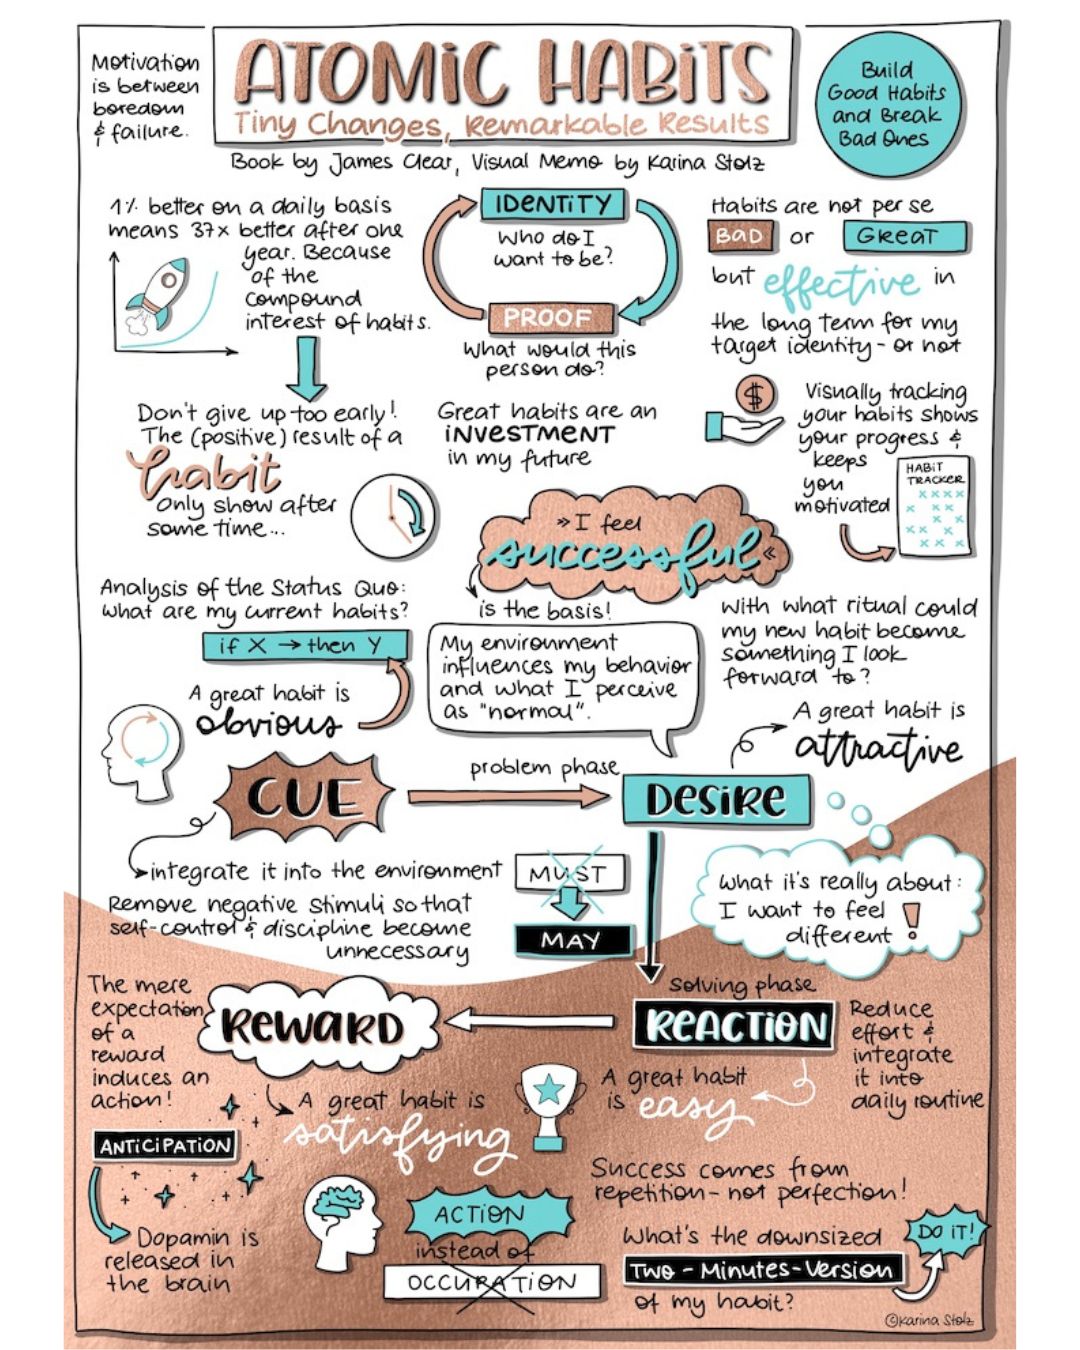 Motivation
is between
boredom
& failure.
ATOMIC HABITS
Tiny Changes, Remarkable Results
Build
Good Habits
and Break
Bad Ones
Book by James Clear, Visual Memo by Karina Stolz
1% better on a daily basis
means 37x better after one
year. Because
of the
compound
interest of habits.
IDENTITY
Who do I
want to be?
PROOF
What would this
person do?
Habits are not per se
BAD or GREAT
but effective in
the long term for my
target identity - or not
Don't give up too early!
The (positive) result of a
habit
Only show after
some time...
Great habits are an
INVESTMENT
in my future
$
Visually tracking
your habits shows
your progress &
keeps
you
motivated
HABIT
TRACKER
x x x x
x x x
x x x
x x x
x x x
»I feel
successful«
is the basis!
Analysis of the Status Quo:
What are my current habits?
if X → then Y
A great habit is
obvious
My environment
influences my behavior
and what I perceive
as "normal".
With what ritual could
my new habit become
something I look
forward to?
A great habit is
attractive
CUE
problem phase
DESIRE
integrate it into the environment
Remove negative stimuli so that
self-control & discipline become
unnecessary
MUST
MAY
What it's really about:
I want to feel
different !
The mere
expectation
of a
reward
induces an
action!
REWARD
solving phase
REACTION
Reduce
effort &
integrate
it into
daily routine
A great habit is
satisfying
A great habit
is easy
ANTICIPATION
Dopamin is
released in
the brain
ACTION
instead of
OCCUPATION
Success comes from
repetition - not perfection!
What's the downsized
Two - Minutes - Version
of my habit?
DO IT!
©Karina Stolz